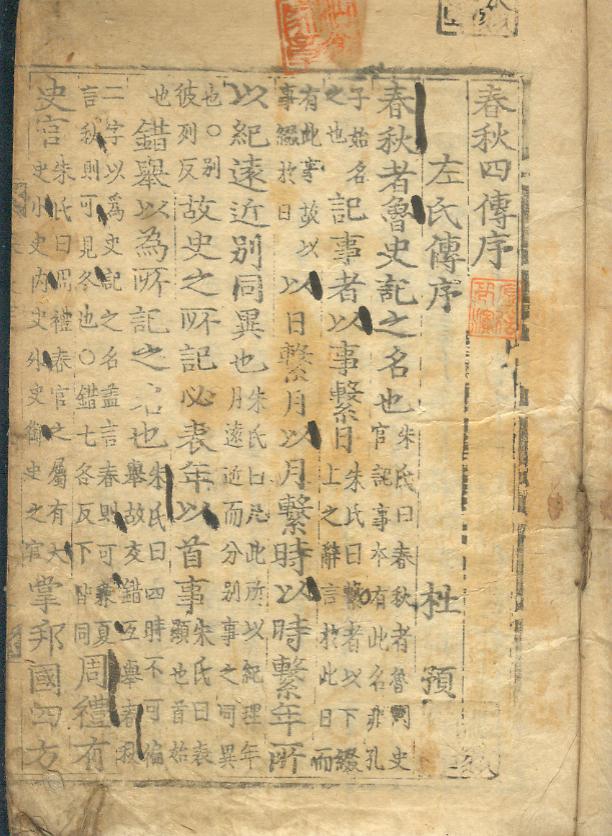 春秋四傳序
左氏傳序 杜預
春秋者魯史記之名也朱氏曰春秋者魯國史官記事本有此名非孔
子始名之也記事者以事繫日朱氏曰繫者以下綴上之辭言於此日而
有此事故以事綴於日以日繫月以月繫時以時繫年所
以紀遠近別同異也朱氏曰凡此所以紀理年月遠近而分別事之同異
也○別彼列反故史之所記必表年以首事朱氏曰表顯也首始
也錯舉以為所記之名也朱氏曰四時不可偏舉故交錯互舉春秋
二字以為史記之名蓋言春則可兼夏言秋則可見冬也○錯七各反下皆同周禮有
史官朱氏曰周禮春官之屬有大史小史內史外史御史之官掌邦國四方